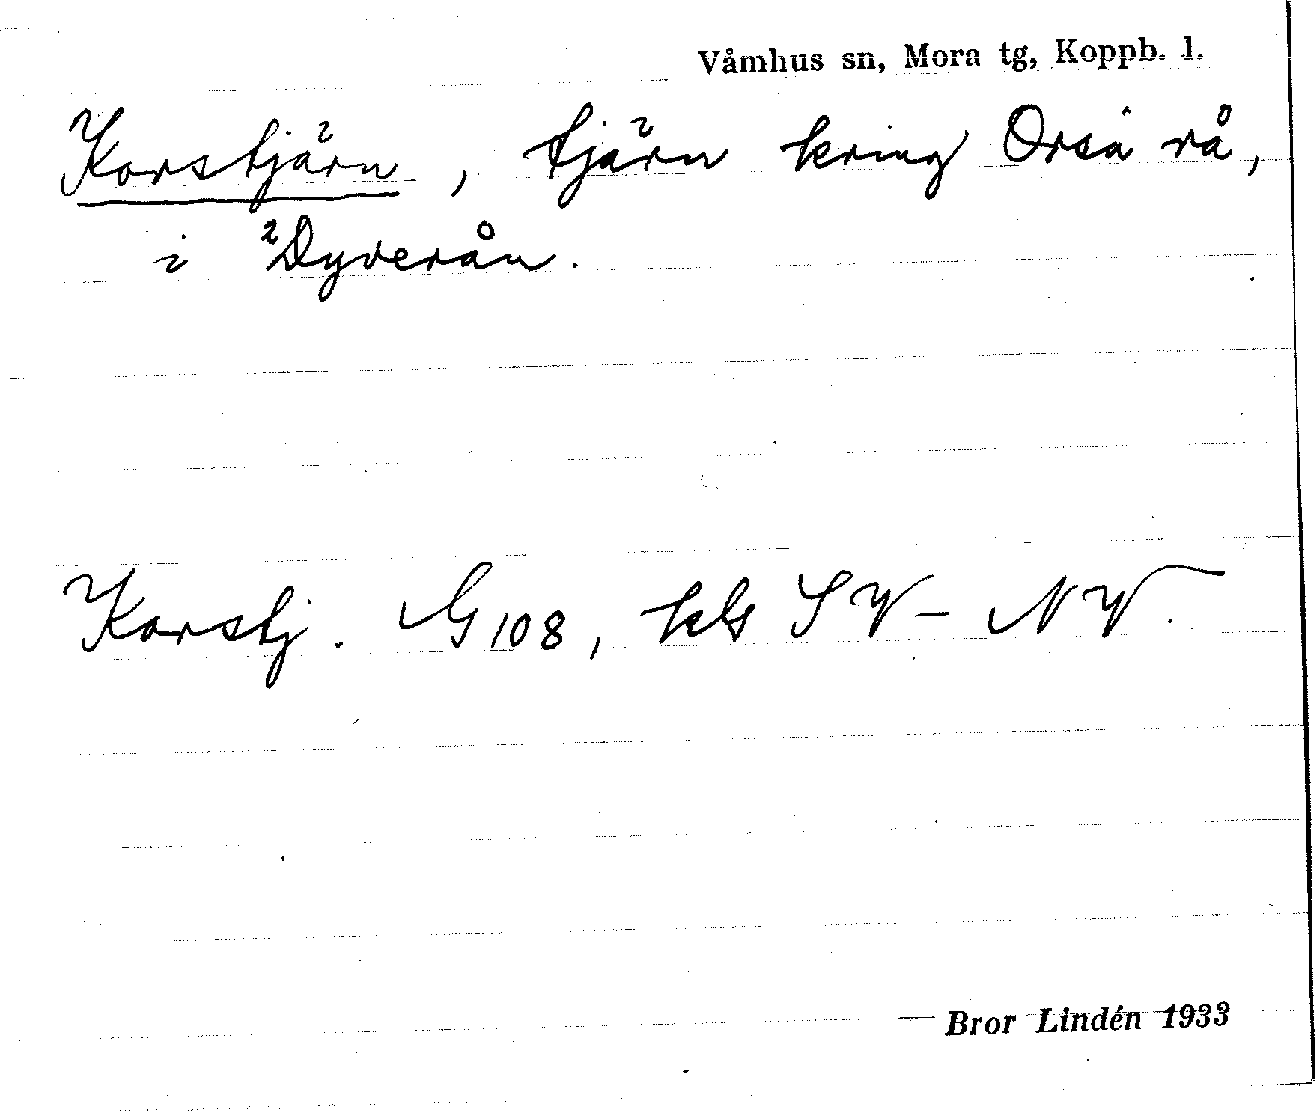 Våmhus sn, Mora tg, Koppb. l.
Korstjärn, tjärn kring Orsa rå,
i ²Dyverån.
Korstj. G108, kls SV–NV.
Bror Lindén 1933